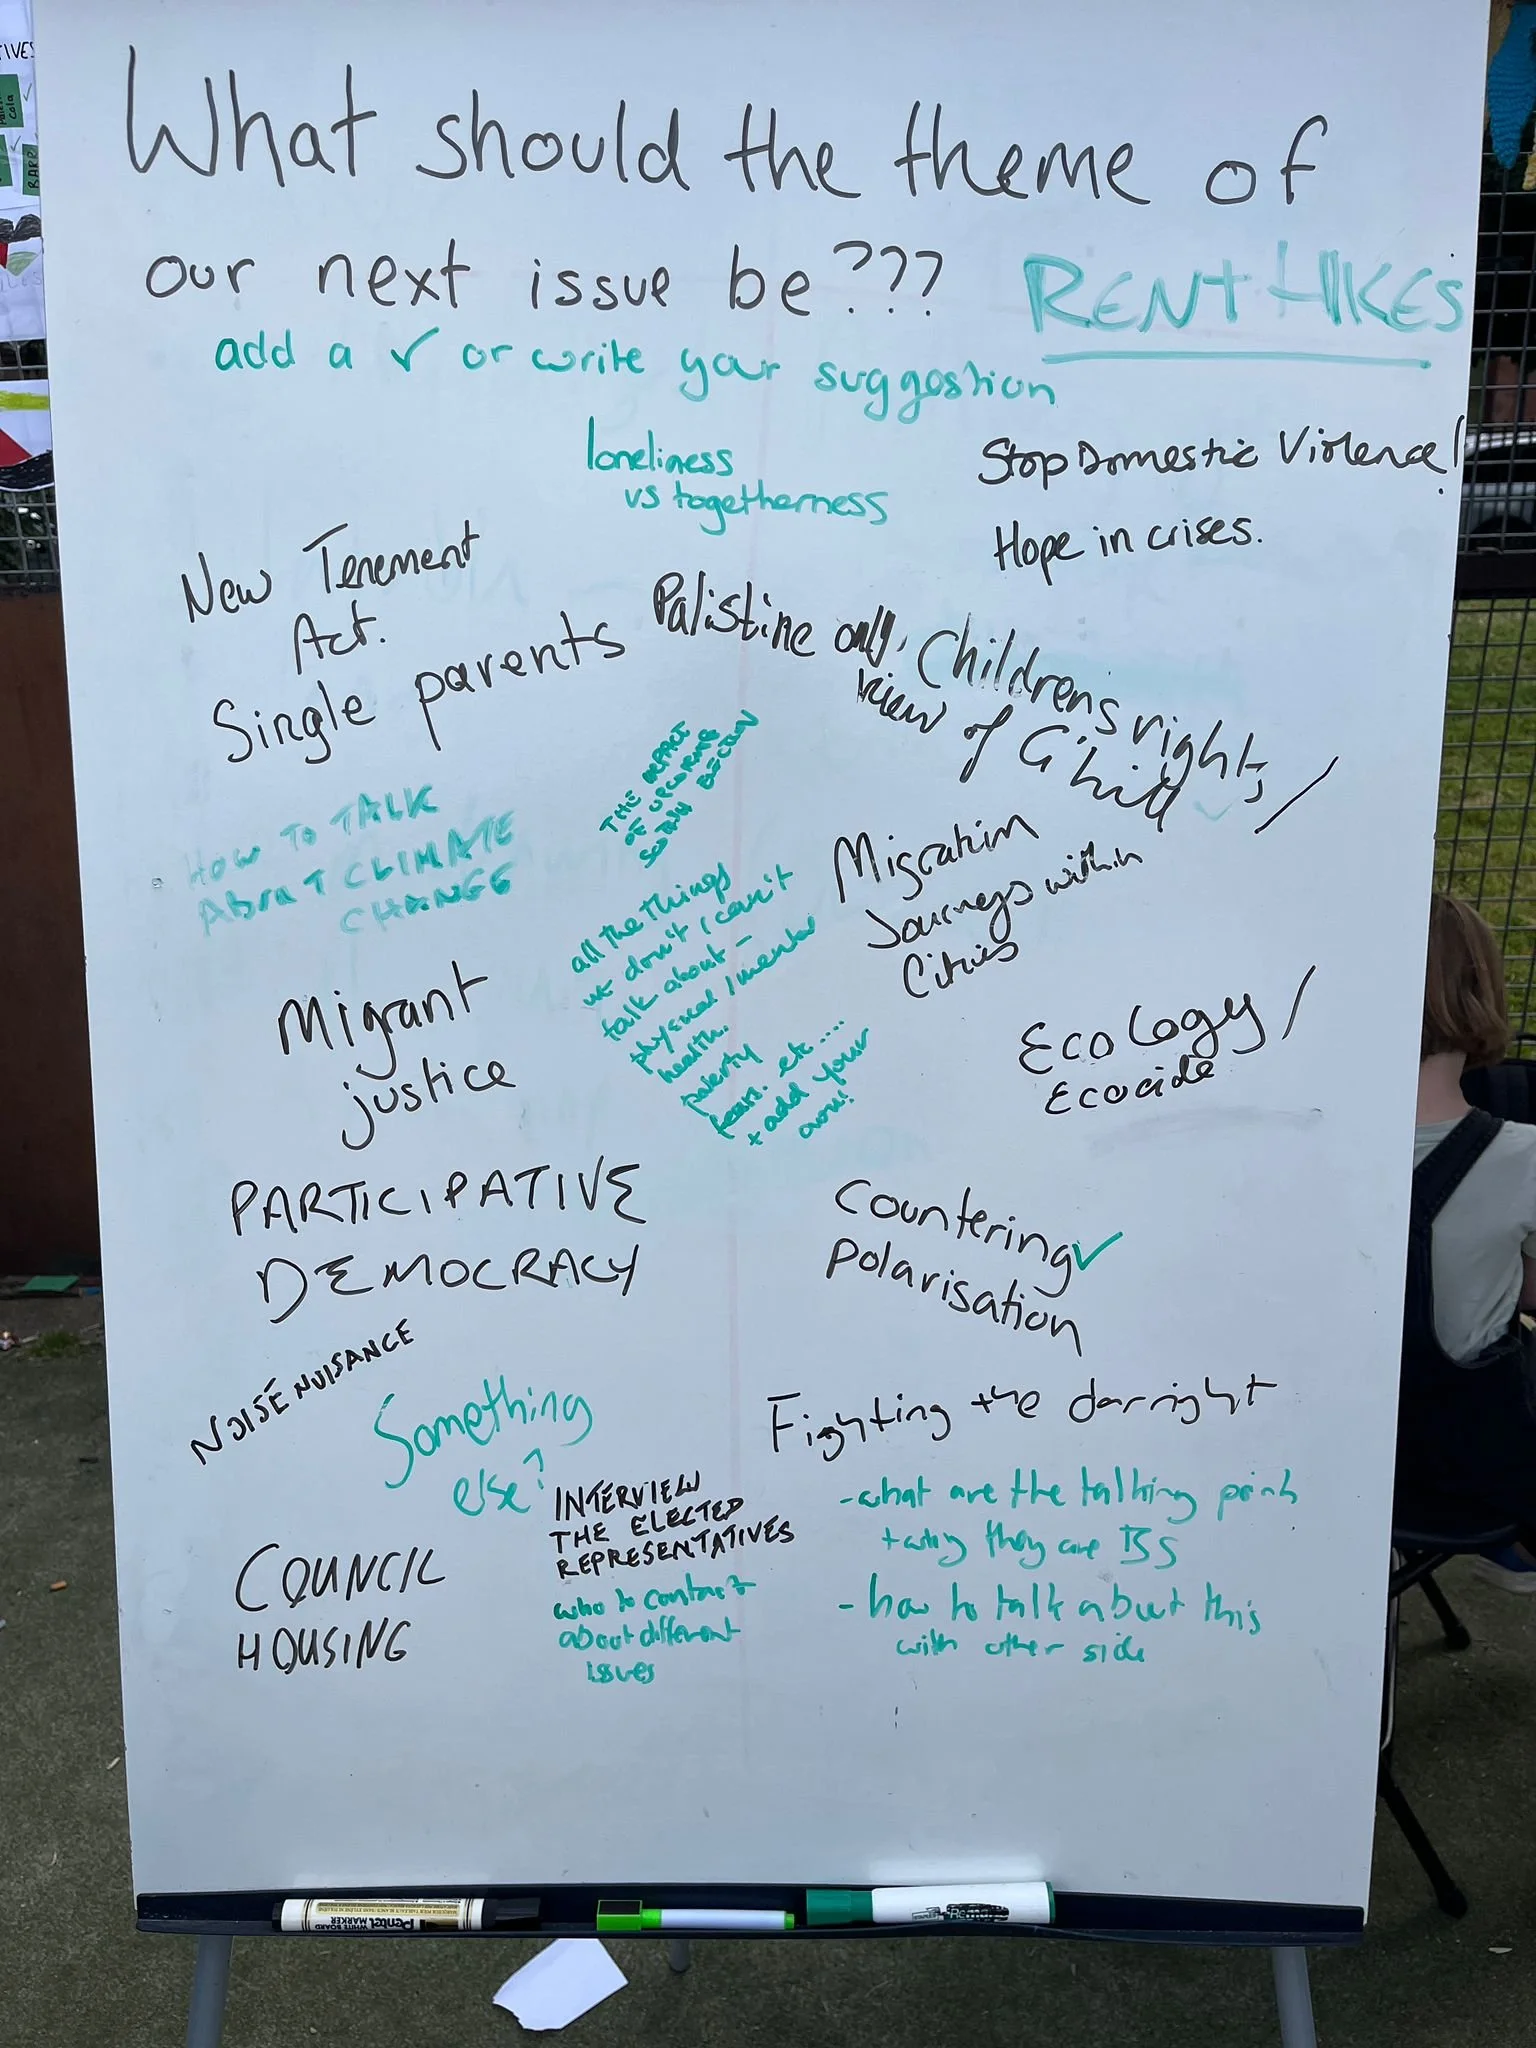 What should the theme of
our next issue be???
RENT HIKES
add a ✓ or write your suggestion
loneliness
vs togetherness
Stop Domestic Violence!
Hope in crises.
New Tenement
Act.
Single parents
Palistine only,
Childrens rights
view of Child
THE IMPACT
OF UPCOMING
How to TALK
About CLIMATE
CHANGE
all the things
we don't / can't
talk about -
physical / mental
health.
poverty
fears. etc ....
+ add your
own!
Migration
Journeys within
Cities
Migrant
justice
Ecology /
Ecocide
PARTICIPATIVE
DEMOCRACY
Countering ✓
Polarisation
NOISE NUISANCE
Something
else?
Fighting the far right
- what are the talking points
+ why they are BS
- how to talk about this
with other side
INTERVIEW
THE ELECTED
REPRESENTATIVES
who to contact
about different
issues
COUNCIL
HOUSING
Pentel
MARKER